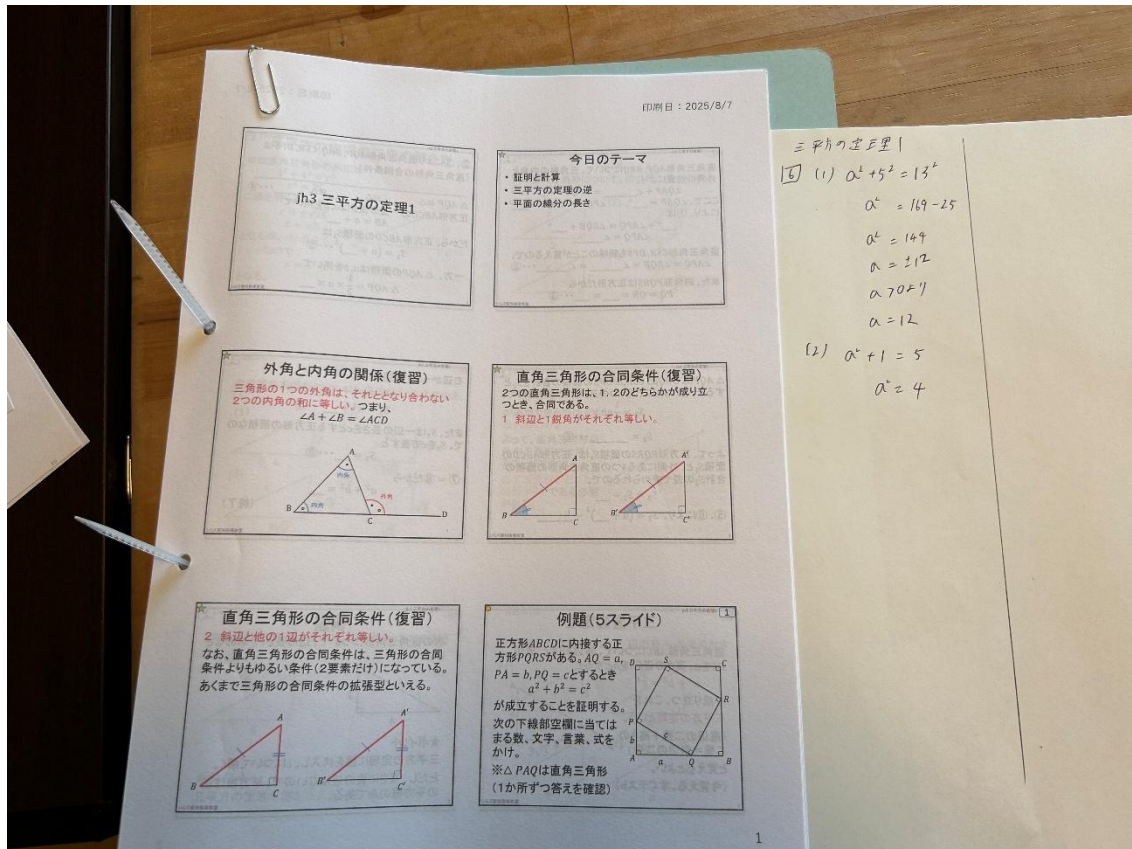 印刷日：2025/8/7
jh3 三平方の定理1
今日のテーマ
・証明と計算
・三平方の定理の逆
・平面の線分の長さ
外角と内角の関係（復習）
三角形の1つの外角は、それととなり合わない
2つの内角の和に等しい。つまり、
∠A + ∠B = ∠ACD
A
内角
外角
B
内角
C
D
直角三角形の合同条件（復習）
2つの直角三角形は、1, 2のどちらかが成り立
つとき、合同である。
1 斜辺と1鋭角がそれぞれ等しい。
A
A'
B
C
B'
C'
直角三角形の合同条件（復習）
2 斜辺と他の1辺がそれぞれ等しい。
なお、直角三角形の合同条件は、三角形の合同
条件よりもゆるい条件（2要素だけ）になっている。
あくまで三角形の合同条件の拡張型といえる。
A
A'
B
C
B'
C'
1
例題（5スライド）
正方形ABCDに内接する正
方形PQRSがある。AQ = a,
PA = b, PQ = cとするとき
a² + b² = c²
が成立することを証明する。
次の下線部空欄に当ては
まる数、文字、言葉、式を
かけ。
※△PAQは直角三角形
（1か所ずつ答えを確認）
D
S
C
R
P
b
c
A
a
Q
B
1
三平方の定理1
6 (1) a² + 5² = 13²
a² = 169 - 25
a² = 144
a = ±12
a > 0より
a = 12
(2) a² + 1 = 5
a² = 4